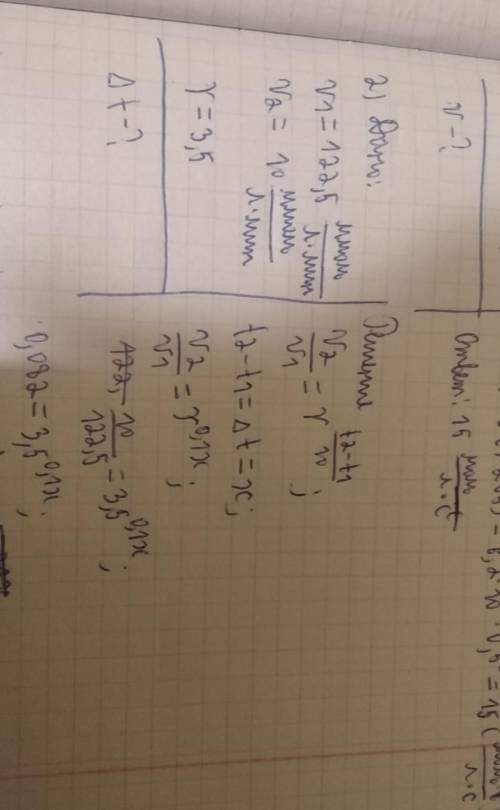 v - ?
Ответ: 15 моль/л·с
2) Дано:
v1 = 122,5 ммоль/л·мин
v2 = 10 ммоль/л·мин
γ = 3,5
Δt - ?
Решение
v2/v1 = γ^(t2-t1)/10;
t2-t1 = Δt = x;
v2/v1 = γ^0,1x;
10/122,5 = 3,5^0,1x;
0,082 = 3,5^0,1x;